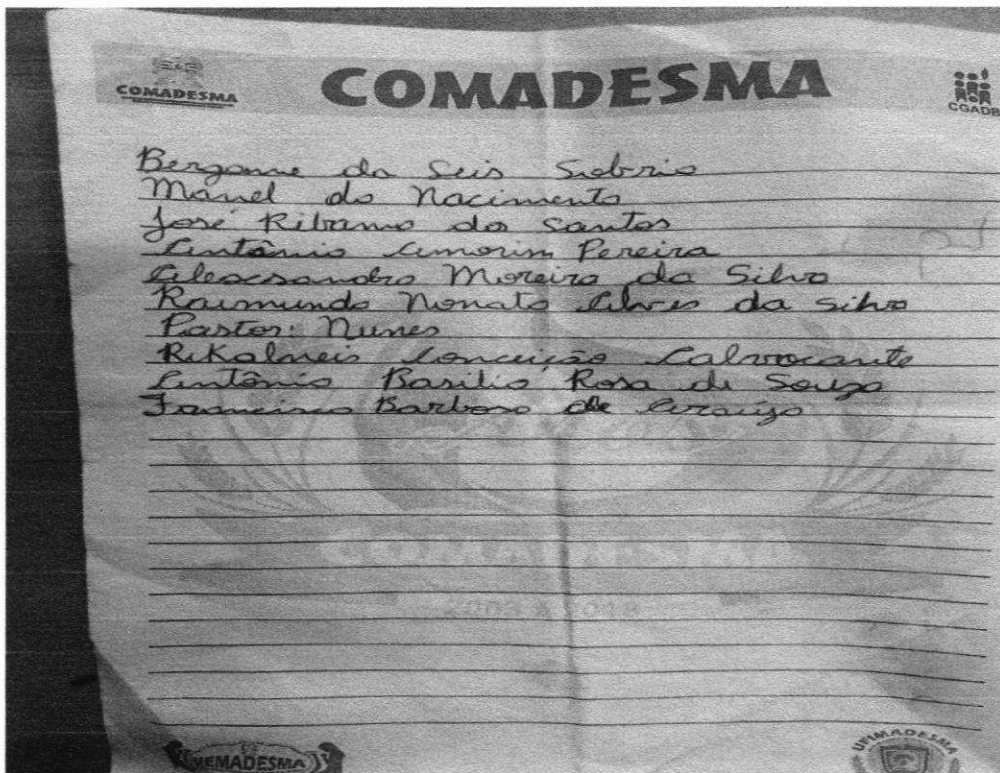 COMADESMA
COMADESMA
CGADB
Bergome da Seis Siobrio
Manel do Nacimento
José Ribamo dos Santos
Antônio Amorim Pereira
Aleocsandro Moreira da Silva
Raimundo Nonato Alves da silva
Pastor: Nunes
Rikalneis Conceição Calvocante
Antônio Basilio Rosa de Souza
Francisco Barboso de Araújo
COMADESMA
2003 A 2018
VEMADESMA
UFIMADESMA